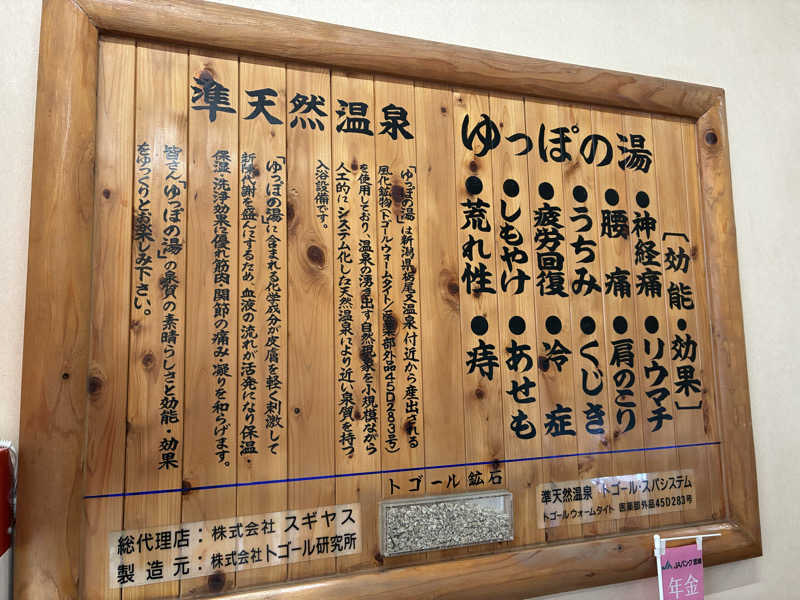 ゆっぽの湯
〔効能・効果〕
●神経痛 ●リウマチ
●腰痛 ●肩のこり
●うちみ ●くじき
●疲労回復 ●冷症
●しもやけ ●あせも
●荒れ性 ●痔
準天然温泉
「ゆっぽの湯」は新潟県栃尾又温泉付近から産出される
風化鉱物(トゴールウォームタイト/医薬部外品45D283号)
を使用しており、温泉の湧き出す自然現象を小規模ながら
人工的にシステム化した天然温泉により近い泉質を持つ
入浴設備です。
「ゆっぽの湯」に含まれる化学成分が皮膚を軽く刺激して
新陳代謝を盛んにするため血液の流れが活発になり保温・
保湿・洗浄効果に優れ筋肉・関節の痛み・凝りを和らげます。
皆さん「ゆっぽの湯」の泉質の素晴らしさと効能・効果
をゆっくりとお楽しみ下さい。
トゴール鉱石
総代理店:株式会社 スギヤス
製造元:株式会社トゴール研究所
準天然温泉 トゴール・スパシステム
トゴールウォームタイト 医薬部外品45D283号
JAバンク宮崎
年金